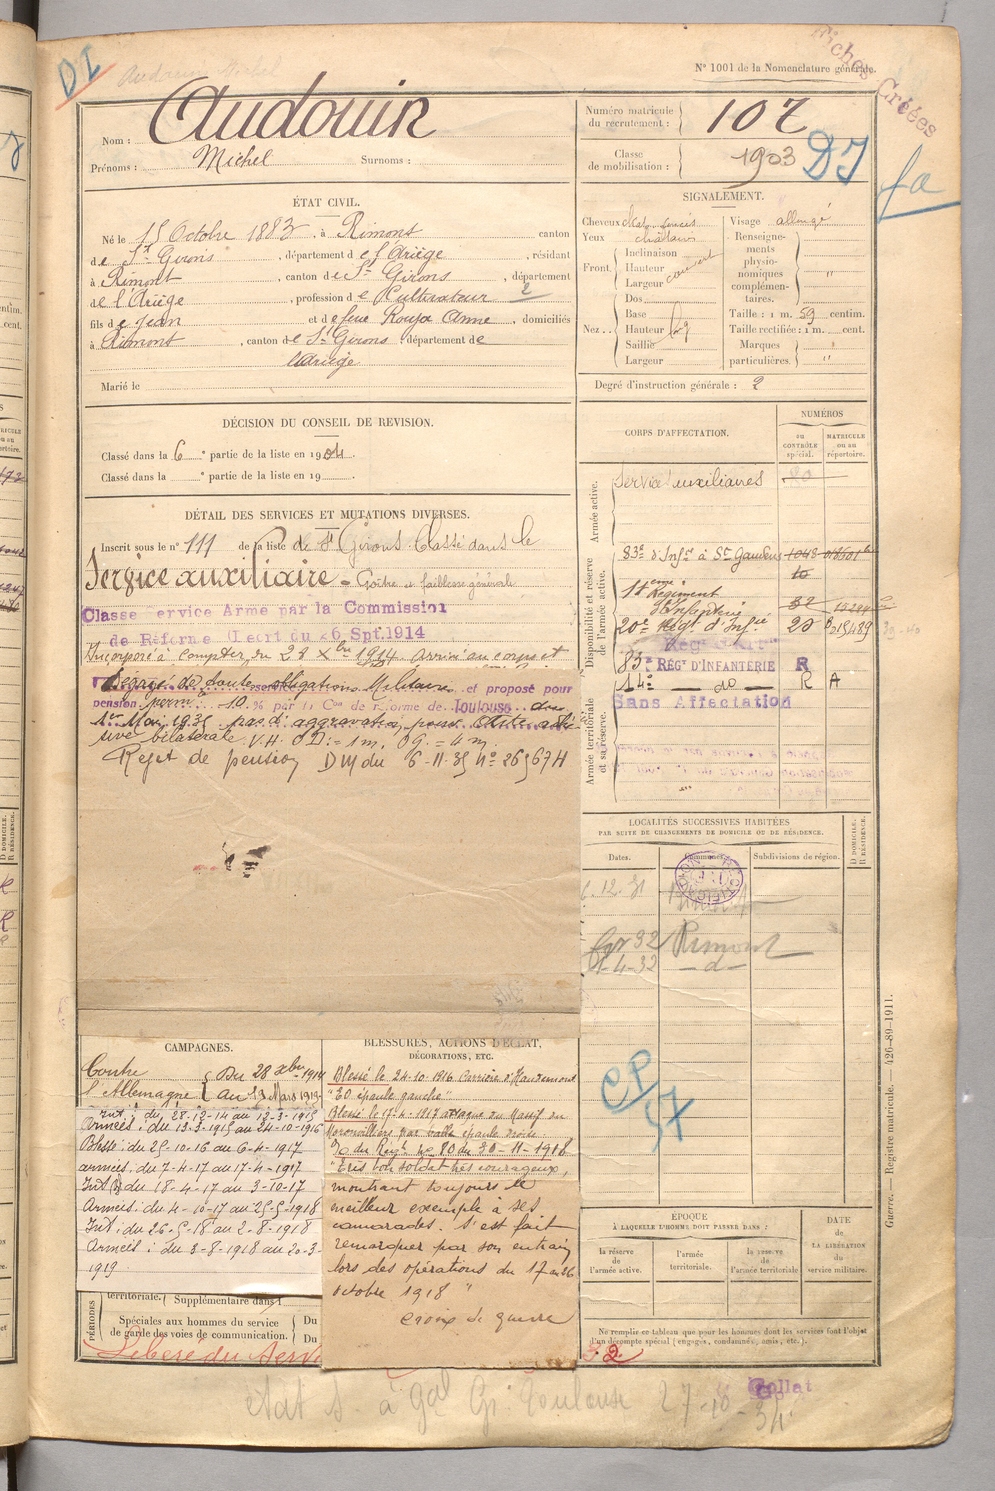 DI
Audouin Michel
Fiches Créées
N° 1001 de la Nomenclature générale.
Nom : Audouin
Prénoms : Michel Surnoms :
Numéro matricule du recrutement : 107
Classe de mobilisation : 1903
DI
fa
ÉTAT CIVIL.
Né le 15 Octobre 1883 à Rimont canton
de St Girons, département de l'Ariège, résidant
à Rimont, canton de St Girons, département
de l'Ariège, profession de Cultivateur 2
fils de Jean et de feue Rouja Anne, domiciliés
à Rimont, canton de St Girons département de
l'Ariège
Marié le
SIGNALEMENT.
Cheveux
Yeux châtains
Front. Inclinaison
Hauteur couvert
Largeur
Nez.. Dos
Base
Hauteur
Saillie
Largeur
Visage allongé
Renseignements physionomiques complémentaires. "
Taille : 1 m. 59 centim.
Taille rectifiée : 1 m. cent.
Marques particulières. "
Degré d'instruction générale : 2
DÉCISION DU CONSEIL DE REVISION.
Classé dans la 6e partie de la liste en 1904.
Classé dans la e partie de la liste en 19 .
DÉTAIL DES SERVICES ET MUTATIONS DIVERSES.
Inscrit sous le n° 111 de la liste de St Girons Classé dans le
Service auxiliaire - Goitre et faiblesse générale
Classé service Armé par la Commission
de Réforme (Décret du 26 Spt. 1914
Incorporé à compter du 28 Xbre 1914. Arrivé au corps et
Dégagé de toutes obligations Militaires et proposé pour
pension perm. à -10 % par la Con de réforme de Toulouse du
1er Mai 1935 pas d'aggravation pour
bilatérale V.H. OD: = 1m, OG: = 4 m.
Rejet de pension DM du 6-11-35 N° 26567H
CORPS D'AFFECTATION.
NUMÉROS
au CONTRÔLE spécial.
MATRICULE ou au répertoire.
Armée active.
Services auxiliaires
Disponibilité et réserve de l'armée active.
83e d'Infie à St Gaudens 1048
14eme Régiment
d'Infanterie 32
20e Régt d'Infie 20
83e RÉGt D'INFANTERIE R
14e — do — R A
Sans Affectation
Armée territoriale et sa réserve.
LOCALITÉS SUCCESSIVES HABITÉES
PAR SUITE DE CHANGEMENTS DE DOMICILE OU DE RÉSIDENCE.
Dates. Communes. Subdivisions de région. D DOMICILE. R RÉSIDENCE.
12.31
32 Rimont
1-4-32 — d —
CP/57
CAMPAGNES.
Contre l'Allemagne { Du 28 Xbre 1914
au 23 Mars 1919
Int : du 28-12-14 au 12-3-1915
Armées : du 13-3-1915 au 24-10-1916
Blessé : du 25-10-16 au 6-4-1917
armées : du 7-4-17 au 17-4-1917
Int (B) du 18-4-17 au 3-10-17
Armées : du 4-10-17 au 25-5-1918
Int : du 26-5-18 au 2-8-1918
Armées : du 3-8-1918 au 20-3-
1919
BLESSURES, ACTIONS D'ÉCLAT, DÉCORATIONS, ETC.
Blessé le 24-10-1916 Carrière d'Haudromont
"EO épaule gauche"
Blessé le 17-4-1917 attaque du Massif de
Moronvilliers par balle épaule droite.
O du Régt No 80 du 20-11-1918
"Très bon soldat très courageux,
montrant toujours le
meilleur exemple à ses
camarades. S'est fait
remarquer par son entrain
lors des opérations du 17 au 26
octobre 1918 "
croix de guerre
PÉRIODES
territoriale. Supplémentaire dans
Spéciales aux hommes du service de garde des voies de communication. Du
Du
Libéré du Servi
ÉPOQUE
À LAQUELLE L'HOMME DOIT PASSER DANS :
la réserve de l'armée active.
l'armée territoriale.
la réserve de l'armée territoriale.
DATE DE LA LIBÉRATION du service militaire.
Ne remplir ce tableau que pour les hommes dont les services font l'objet
d'un décompte spécial (engagés, condamnés, omis, etc.).
Guerre. — Registre matricule. — 426-89-1911.
Collat
état S. à Gal Gi Toulouse 27-10-34